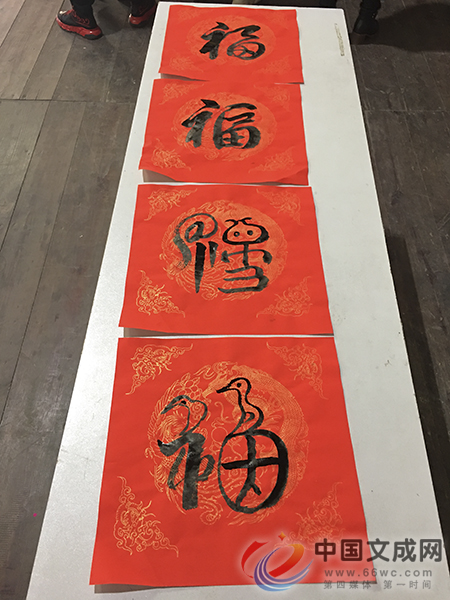 福
福
福
中国文成网
www.66wc.com
第四媒体 第一时间